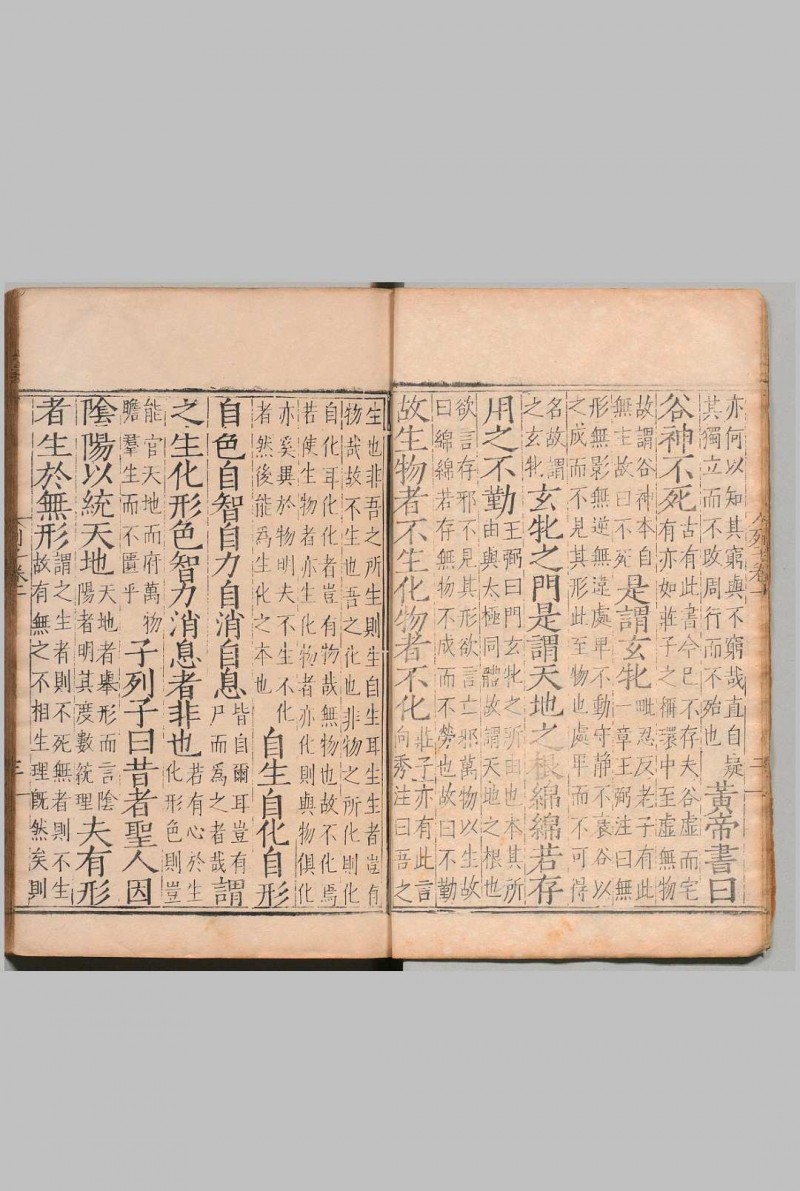 亦何以知其窮與不窮哉直自疑
其獨立而不改周行而不殆也
黃帝書曰
谷神不死
古有此書今已不存夫谷虛而宅
有亦如莊子之稱環中至虛無物
故謂谷神本自
無生故曰不死
是謂玄牝
毗忍反老子有此
一章王弼注曰無
形無影無逆無違處卑不動守静不衰谷以
之成而不見其形此至物也處卑而不可得
名故謂
之玄牝
玄牝之門是謂天地之根綿綿若存
用之不勤
王弼曰門玄牝之所由也本其所
由與太極同體故謂天地之根也
欲言存邪不見其形欲言亡邪萬物以生故
曰綿綿若存無物不成而不勞也故曰不勤
故生物者不生化物者不化
莊子亦有此言
向秀注曰吾之
生也非吾之所生則生自生耳生生者豈有
物哉故不生也吾之化也非物之所化則化
自化耳化化者豈有物哉無物也故不化焉
若使生物者亦生化物者亦化則與物俱化
亦奚異於物明夫不生不化
者然後能爲生化之本也
自生自化自形
自色自智自力自消自息
皆自爾耳豈有
尸而爲之者哉
謂
之生化形色智力消息者非也
若有心於生
化形色則豈
能官天地而府萬物
贍羣生而不匱乎
子列子曰昔者聖人因
陰陽以統天地
天地者舉形而言陰
陽者明其度數統理
夫有形
者生於無形
謂之生者則不死無者則不生
故有無之不相生理既然矣則